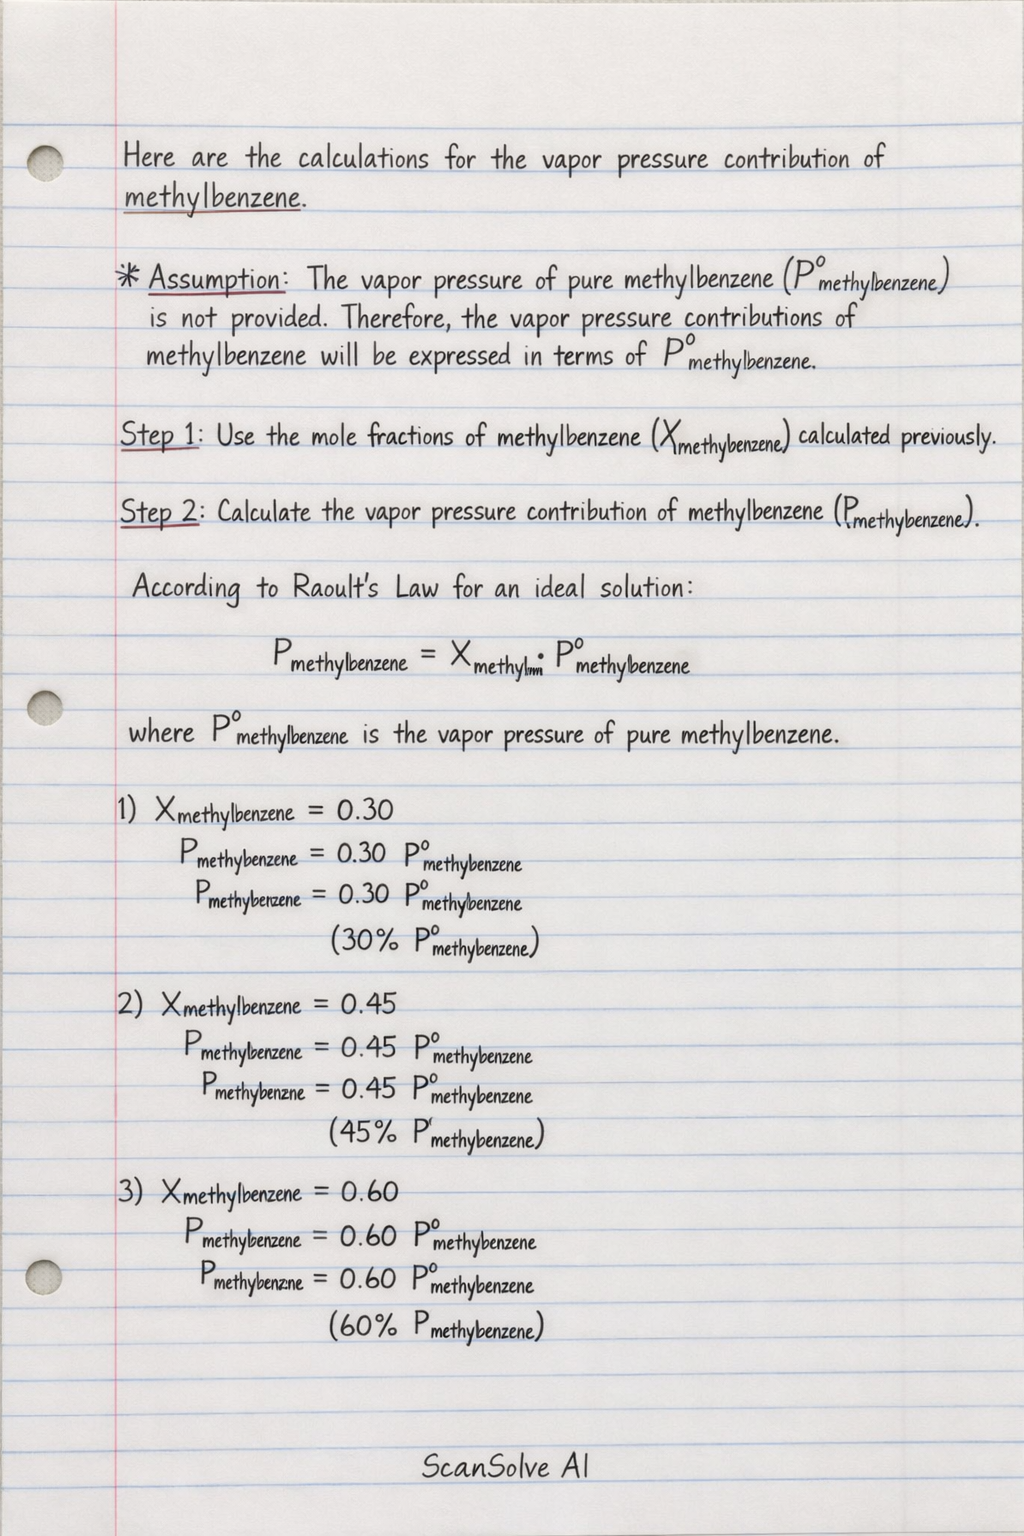 Here are the calculations for the vapor pressure contribution of
methylbenzene.
* Assumption: The vapor pressure of pure methylbenzene (P°methylbenzene)
is not provided. Therefore, the vapor pressure contributions of
methylbenzene will be expressed in terms of P°methylbenzene.
Step 1: Use the mole fractions of methylbenzene (Xmethybenzene) calculated previously.
Step 2: Calculate the vapor pressure contribution of methylbenzene (Pmethybenzene).
According to Raoult's Law for an ideal solution:
Pmethylbenzene = X P°methylbenzene
where P°methylbenzene is the vapor pressure of pure methylbenzene.
1) Xmethylbenzene = 0.30
Pmethybenzene = 0.30 P°methybenzene
Pmethybenzene = 0.30 P°methybenzene
(30% P°methybenzene)
2) Xmethylbenzene = 0.45
Pmethylbenzene = 0.45 P°methybenzene
Pmethybenzne = 0.45 P°methybenzene
(45% P'methybenzene)
3) Xmethylbenzene = 0.60
Pmethybenzene = 0.60 P°methybenzene
Pmethybenzne = 0.60 P°methybenzene
(60% Pmethybenzene)
ScanSolve AI